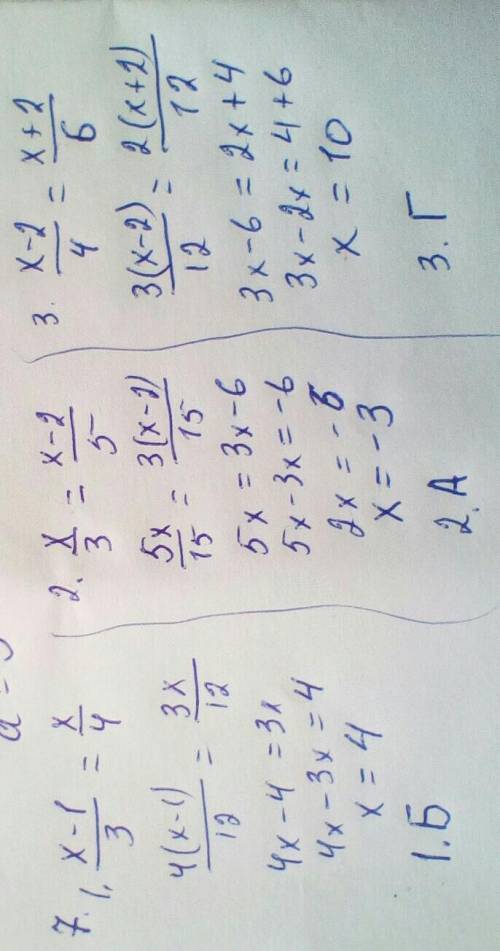 7. 1. x-1/3 = x/4
4(x-1)/12 = 3x/12
4x-4 = 3x
4x-3x = 4
x = 4
1. Б
2. x/3 = x-2/5
5x/15 = 3(x-2)/15
5x = 3x-6
5x-3x = -6
2x = -6
x = -3
2. А
3. x-2/4 = x+2/6
3(x-2)/12 = 2(x+2)/12
3x-6 = 2x+4
3x-2x = 4+6
x = 10
3. Г